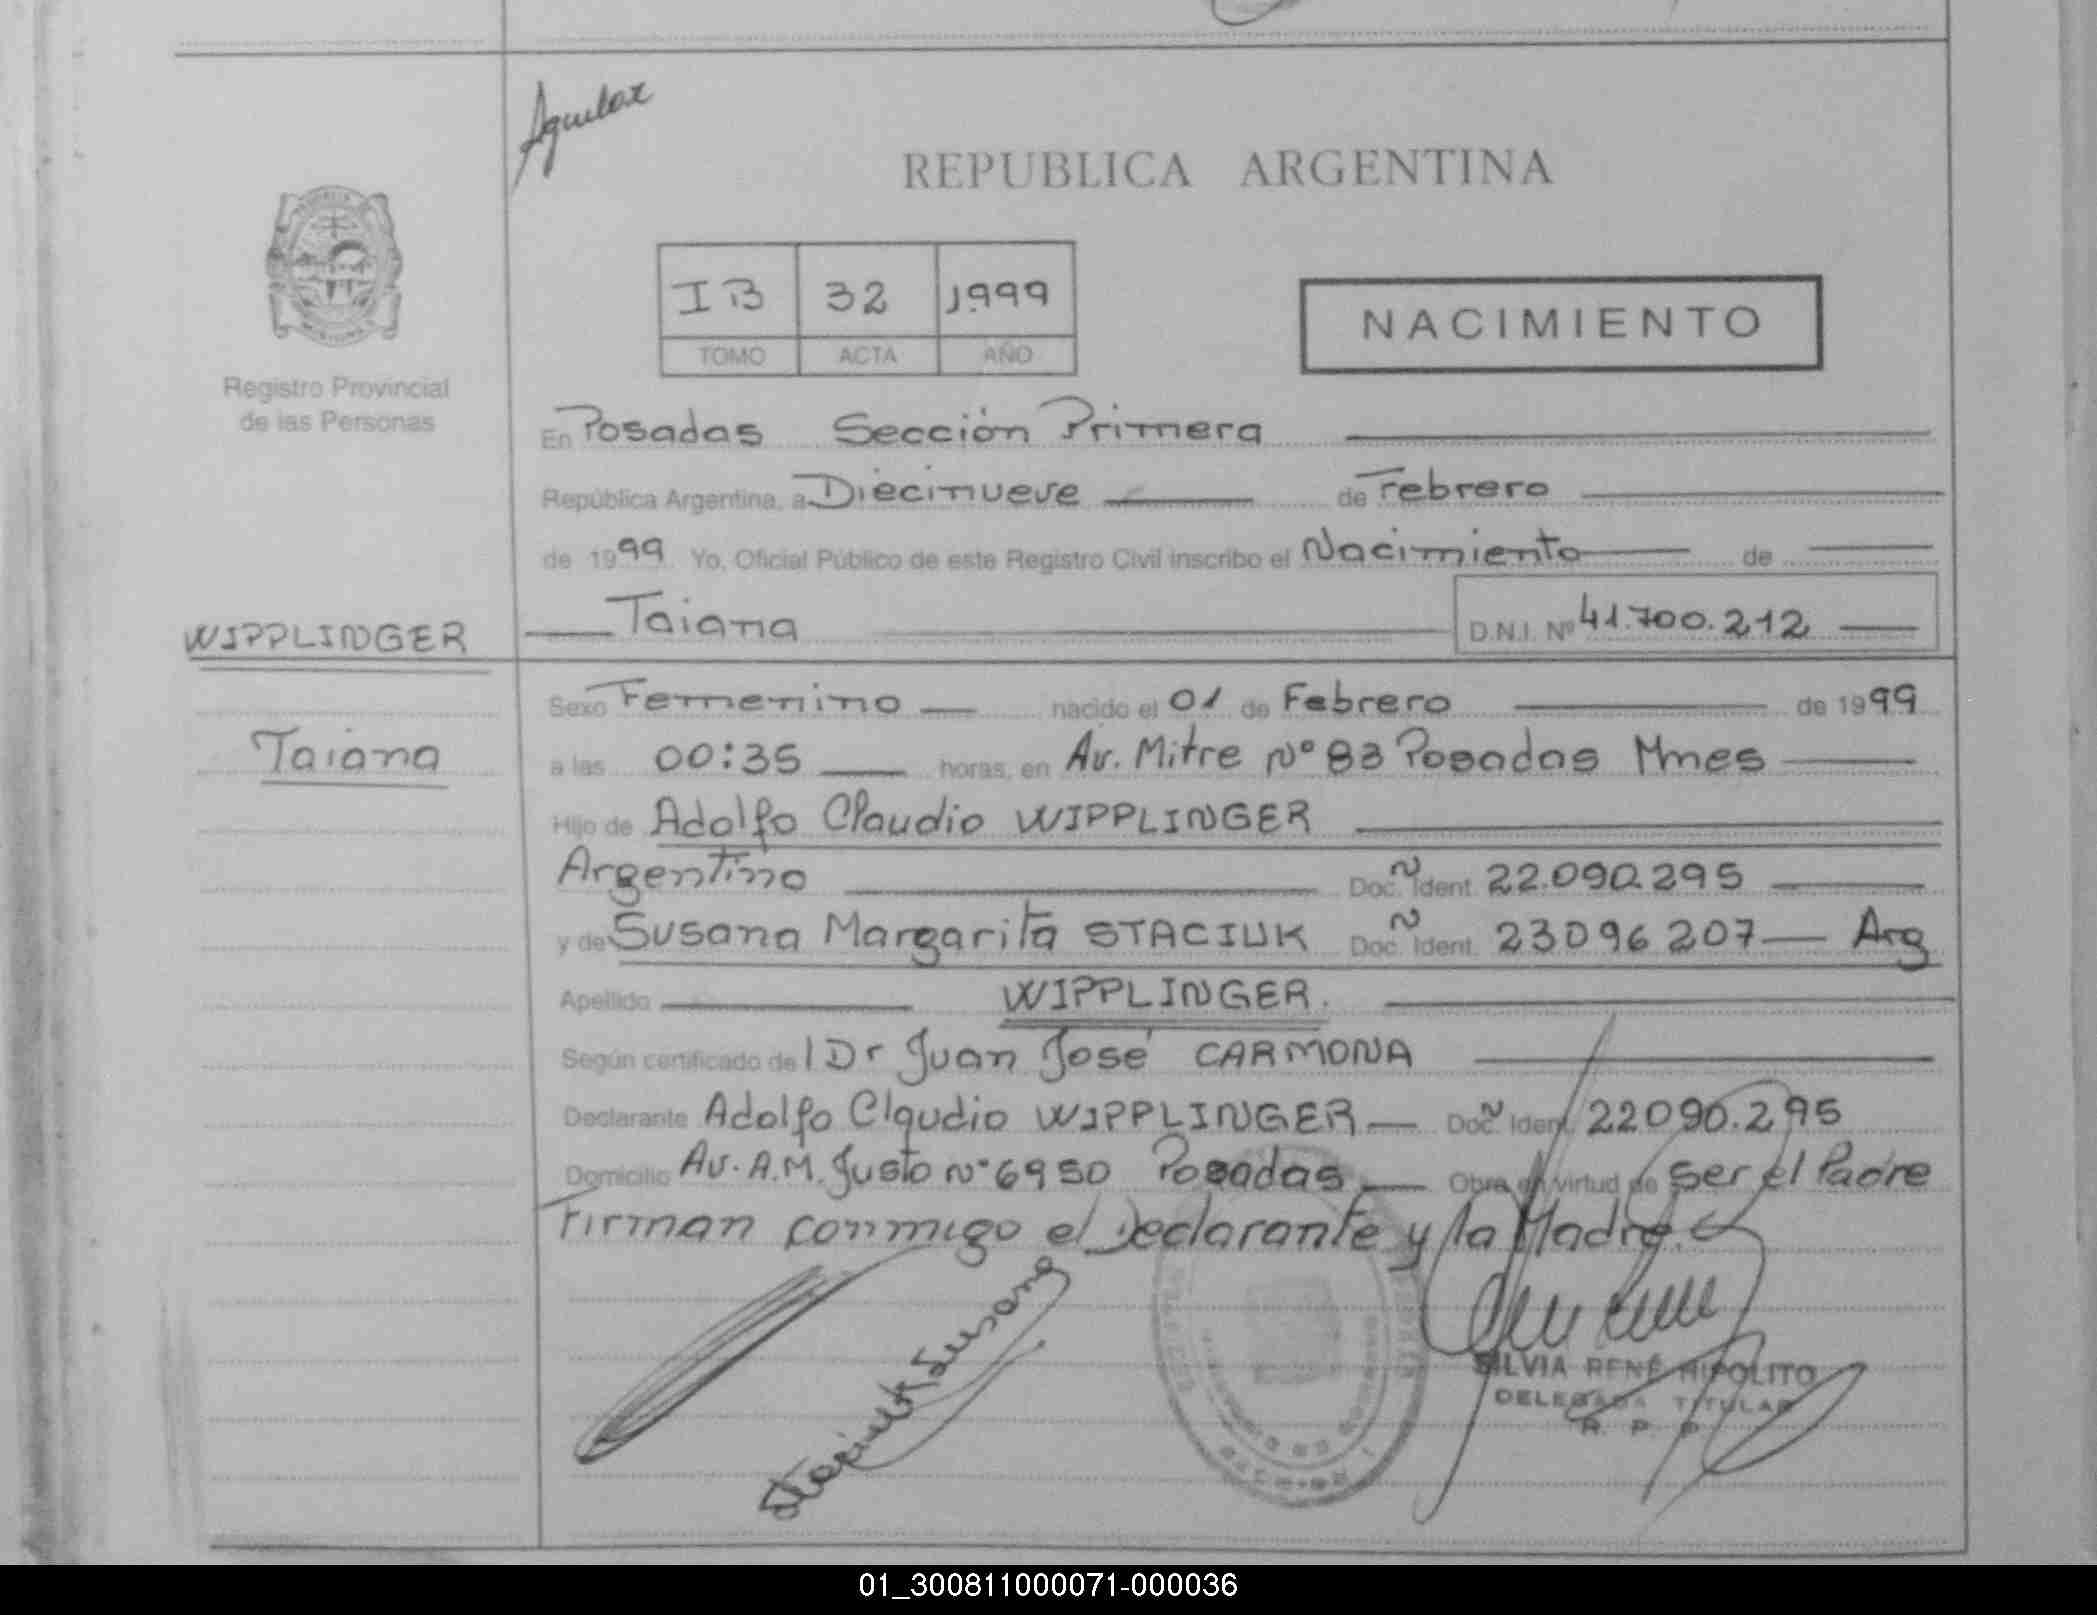 Aguilar
REPUBLICA ARGENTINA
IB 32 1.999
TOMO ACTA AÑO
NACIMIENTO
Registro Provincial
de las Personas
En Posadas Sección Primera
República Argentina, a Diecinueve de Febrero
de 1999 Yo, Oficial Público de este Registro Civil inscribo el Nacimiento de
WIPPLINGER
Taiana D.N.I. Nº 41.700.212
Sexo Femenino nacido el 01 de Febrero de 1999
Taiana
a las 00:35 horas, en Av. Mitre Nº 83 Posadas Mnes
Hijo de Adolfo Claudio WIPPLINGER
Argentino Doc. Ident. 22.090.295
y de Susana Margarita STACIUK Doc. Ident. 23096207 Arg
Apellido WIPPLINGER.
Según certificado de l Dr Juan José CARMONA
Declarante Adolfo Claudio WIPPLINGER Doc. Ident. 22090.295
Domicilio Av. A.M. Justo Nº 6950 Posadas Obra en virtud de ser el Padre
Firman conmigo el Declarante y la Madre.
Staciuk Susana
SILVIA RENÉ HIPOLITO
DELEGADA TITULAR
R. P. P.
01_300811000071-000036